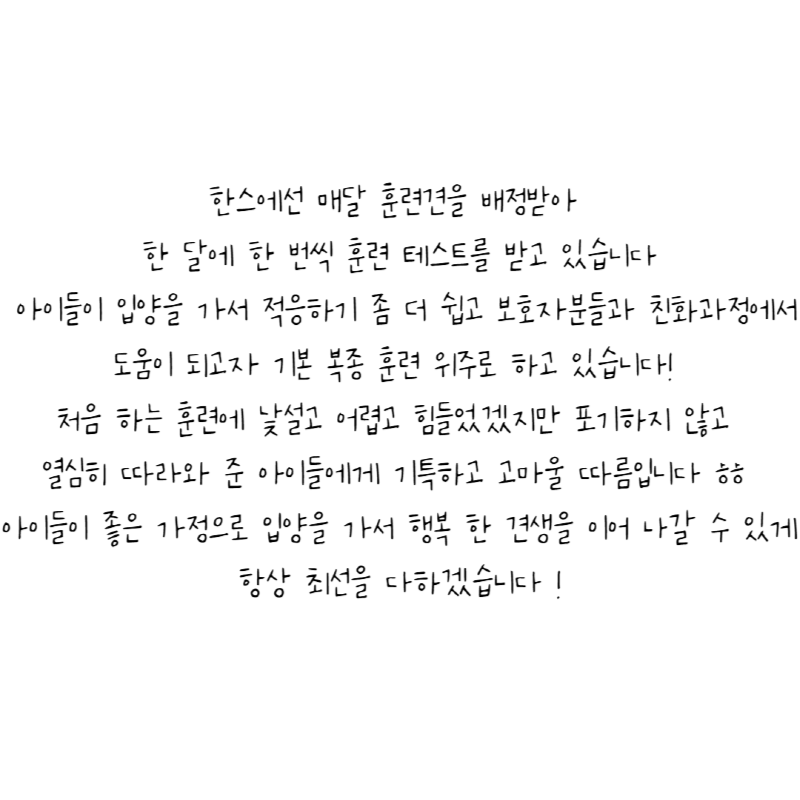 한스에선 매달 훈련견을 배정받아
한 달에 한 번씩 훈련 테스트를 받고 있습니다
아이들이 입양을 가서 적응하기 좀 더 쉽고 보호자분들과 친화과정에서
도움이 되고자 기본 복종 훈련 위주로 하고 있습니다!
처음 하는 훈련에 낯설고 어렵고 힘들었겠지만 포기하지 않고
열심히 따라와 준 아이들에게 기특하고 고마울 따름입니다 ㅎㅎ
아이들이 좋은 가정으로 입양을 가서 행복 한 견생을 이어 나갈 수 있게
항상 최선을 다하겠습니다 !